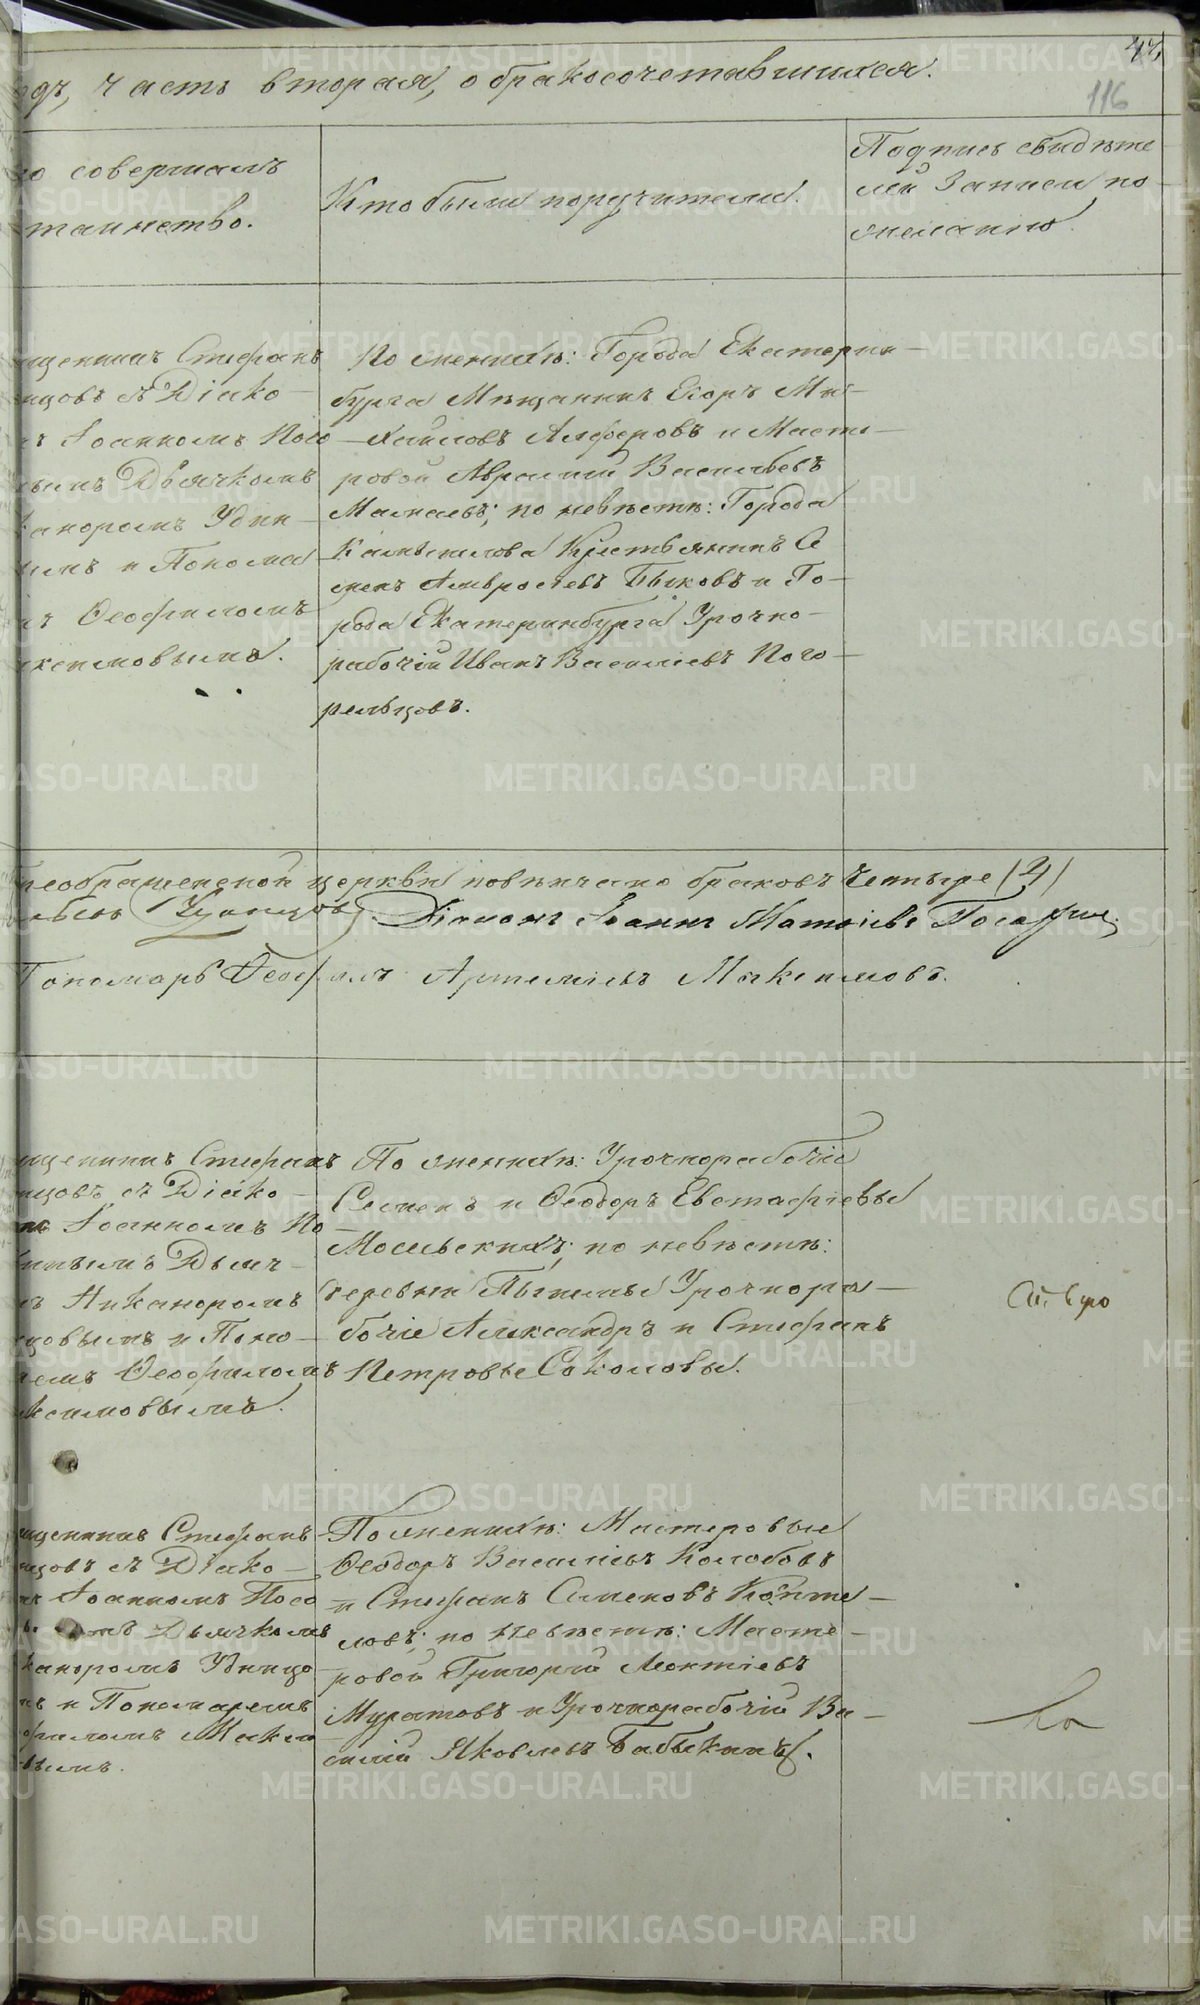 одъ, часть вторая, о бракосочетавшихся.
116
го совершалъ
таинство.
Кто были поручители.
Подпись свидѣте
лей Записи по
желанію.
щенникъ Стефанъ
нцовъ съ Діако
ъ Іоанномъ Посо
вымъ Дьячкомъ
каноромъ Удин
ымъ и Понома
мъ Ѳеофиломъ
ксимовымъ.
По женихѣ: Города Екатерин
бурга Мѣщанинъ Егоръ Ми
хайловъ Алферовъ и Масте
ровой Аврамий Васильевъ
по невѣстѣ: Города
Камышлова Крестьянинъ Се
менъ Амвросіевъ Быковъ и Го
рода Екатеринбурга Урочно
рабочій Иванъ Василіевъ Пого
рельцовъ.
реображенской церкви повѣнчано браковъ четыре (4)
Діаконъ Іоаннъ Матѳіевъ
Пономарь Ѳеофилъ Артеміевъ Максимовъ.
щенникъ Стефанъ
нцовъ съ Діако
мъ Іоанномъ По
Дьяч
ъ Никаноромъ
цовымъ и Поно
ремъ Ѳеофиломъ
ксимовымъ.
По женихѣ: Урочнорабочіе
Семенъ и Ѳеодоръ Евстафіевы
по невѣстѣ:
деревни Пышмы Урочнора
бочіе Александръ и Стефанъ
Петровы Соколовы.
щенникъ Стефанъ
нцовъ съ Діако
мъ Іоанномъ Посо
Дьячкомъ
каноромъ Удинцо
ъ и Пономаремъ
офиломъ Макси
вымъ.
По женихѣ: Мастеровые
Ѳеодоръ Василіевъ Колобовъ
и Стефанъ Семеновъ Копте
ловъ; по невѣстѣ: Масте
ровой Григорій Леонтіевъ
Муратовъ и Урочнорабочій Ва
силій Яковлевъ Бабыкинъ.
METRIKI.GASO-URAL.RU